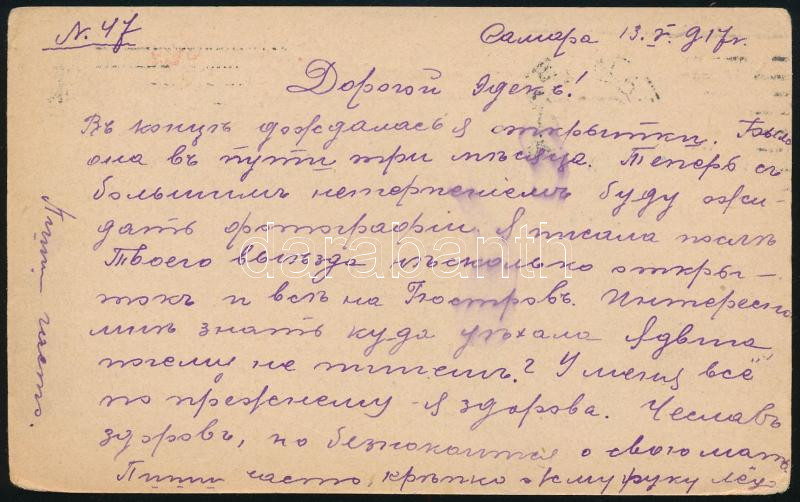 N. 47
Самара 13. V. 917 г.
Дорогой Эдекъ!
Въ концѣ дождалась я открытки. Была
она въ пути три мѣсяца. Теперь съ
большимъ нетерпеніемъ буду ожи-
дать фотографіи. Я писала послѣ
Твоего выѣзда нѣсколько откры-
токъ и всѣ на Гюстровъ. Интересно
мнѣ знать куда уѣхала Ядвига,
почему не пишетъ? У меня всё
по прежнему - я здорова. Чеславъ
здоровъ, но безпокоится о свою мать.
Пиши часто крѣпко жму руку
Пиши часто.
darabanth